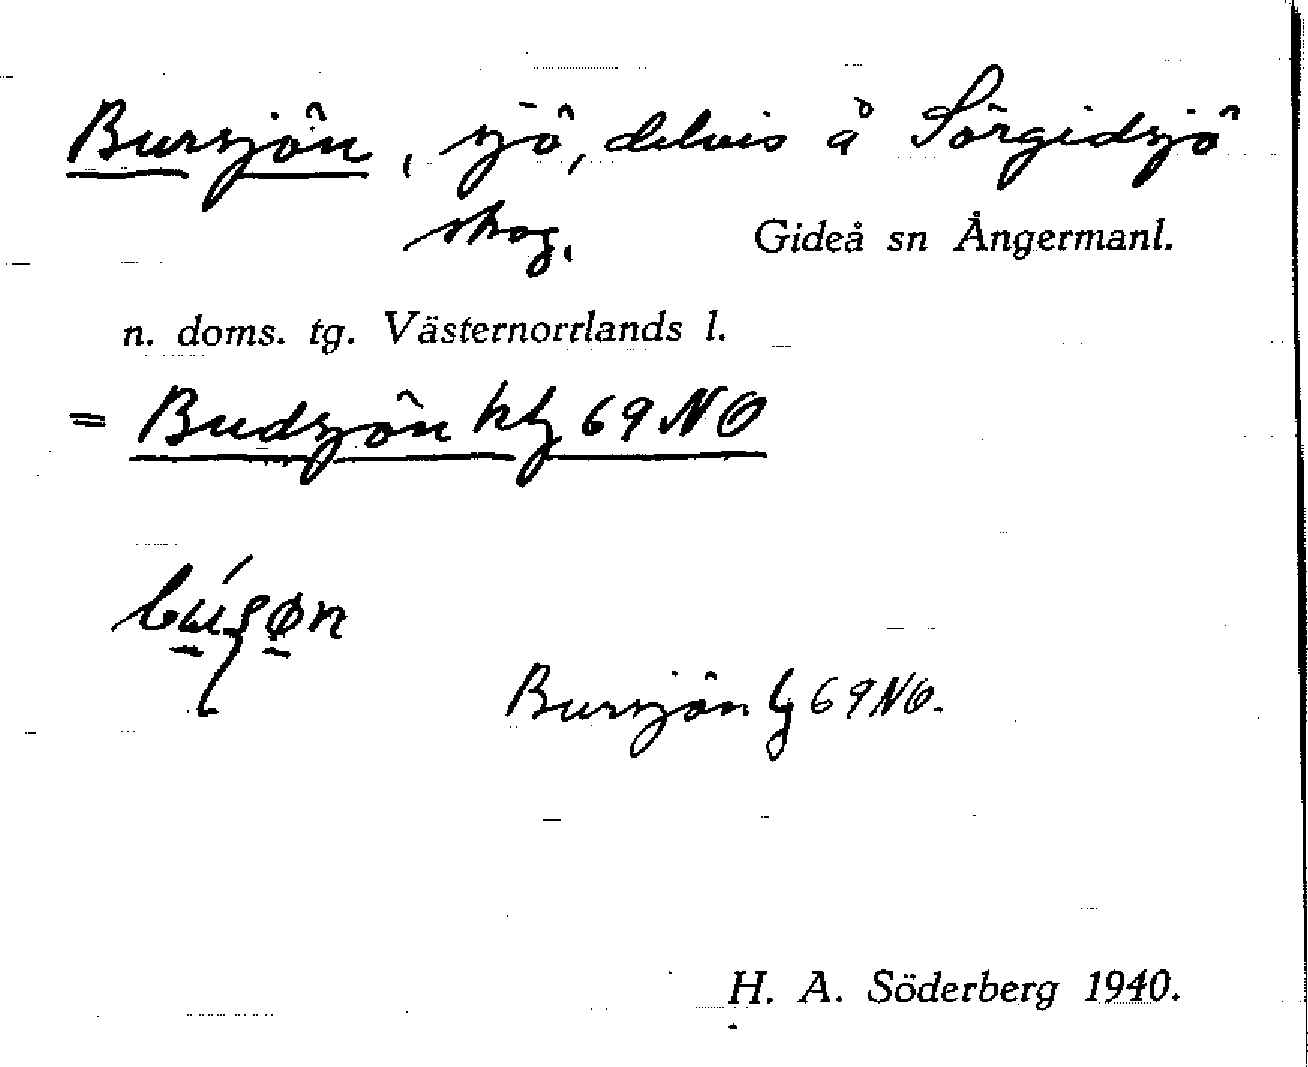 Bursjön, sjö, delvis å Sörgidsjö
skog.
Gideå sn Ångermanl.
n. doms. tg. Västernorrlands l.
= Budsjön hlz 69 NO
Bursjön lz 69 NO.
H. A. Söderberg 1940.